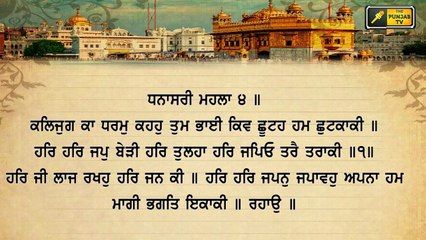 THE
PUNJAB
TV
ਧਨਾਸਰੀ ਮਹਲਾ ੪ ॥
ਕਲਿਜੁਗ ਕਾ ਧਰਮੁ ਕਹਹੁ ਤੁਮ ਭਾਈ ਕਿਵ ਛੂਟਹ ਹਮ ਛੁਟਕਾਕੀ ॥
ਹਰਿ ਹਰਿ ਜਪੁ ਬੇੜੀ ਹਰਿ ਤੁਲਹਾ ਹਰਿ ਜਪਿਓ ਤਰੈ ਤਰਾਕੀ ॥੧॥
ਹਰਿ ਜੀ ਲਾਜ ਰਖਹੁ ਹਰਿ ਜਨ ਕੀ ॥ ਹਰਿ ਹਰਿ ਜਪਨੁ ਜਪਾਵਹੁ ਅਪਨਾ ਹਮ
ਮਾਗੀ ਭਗਤਿ ਇਕਾਕੀ ॥ ਰਹਾਉ ॥